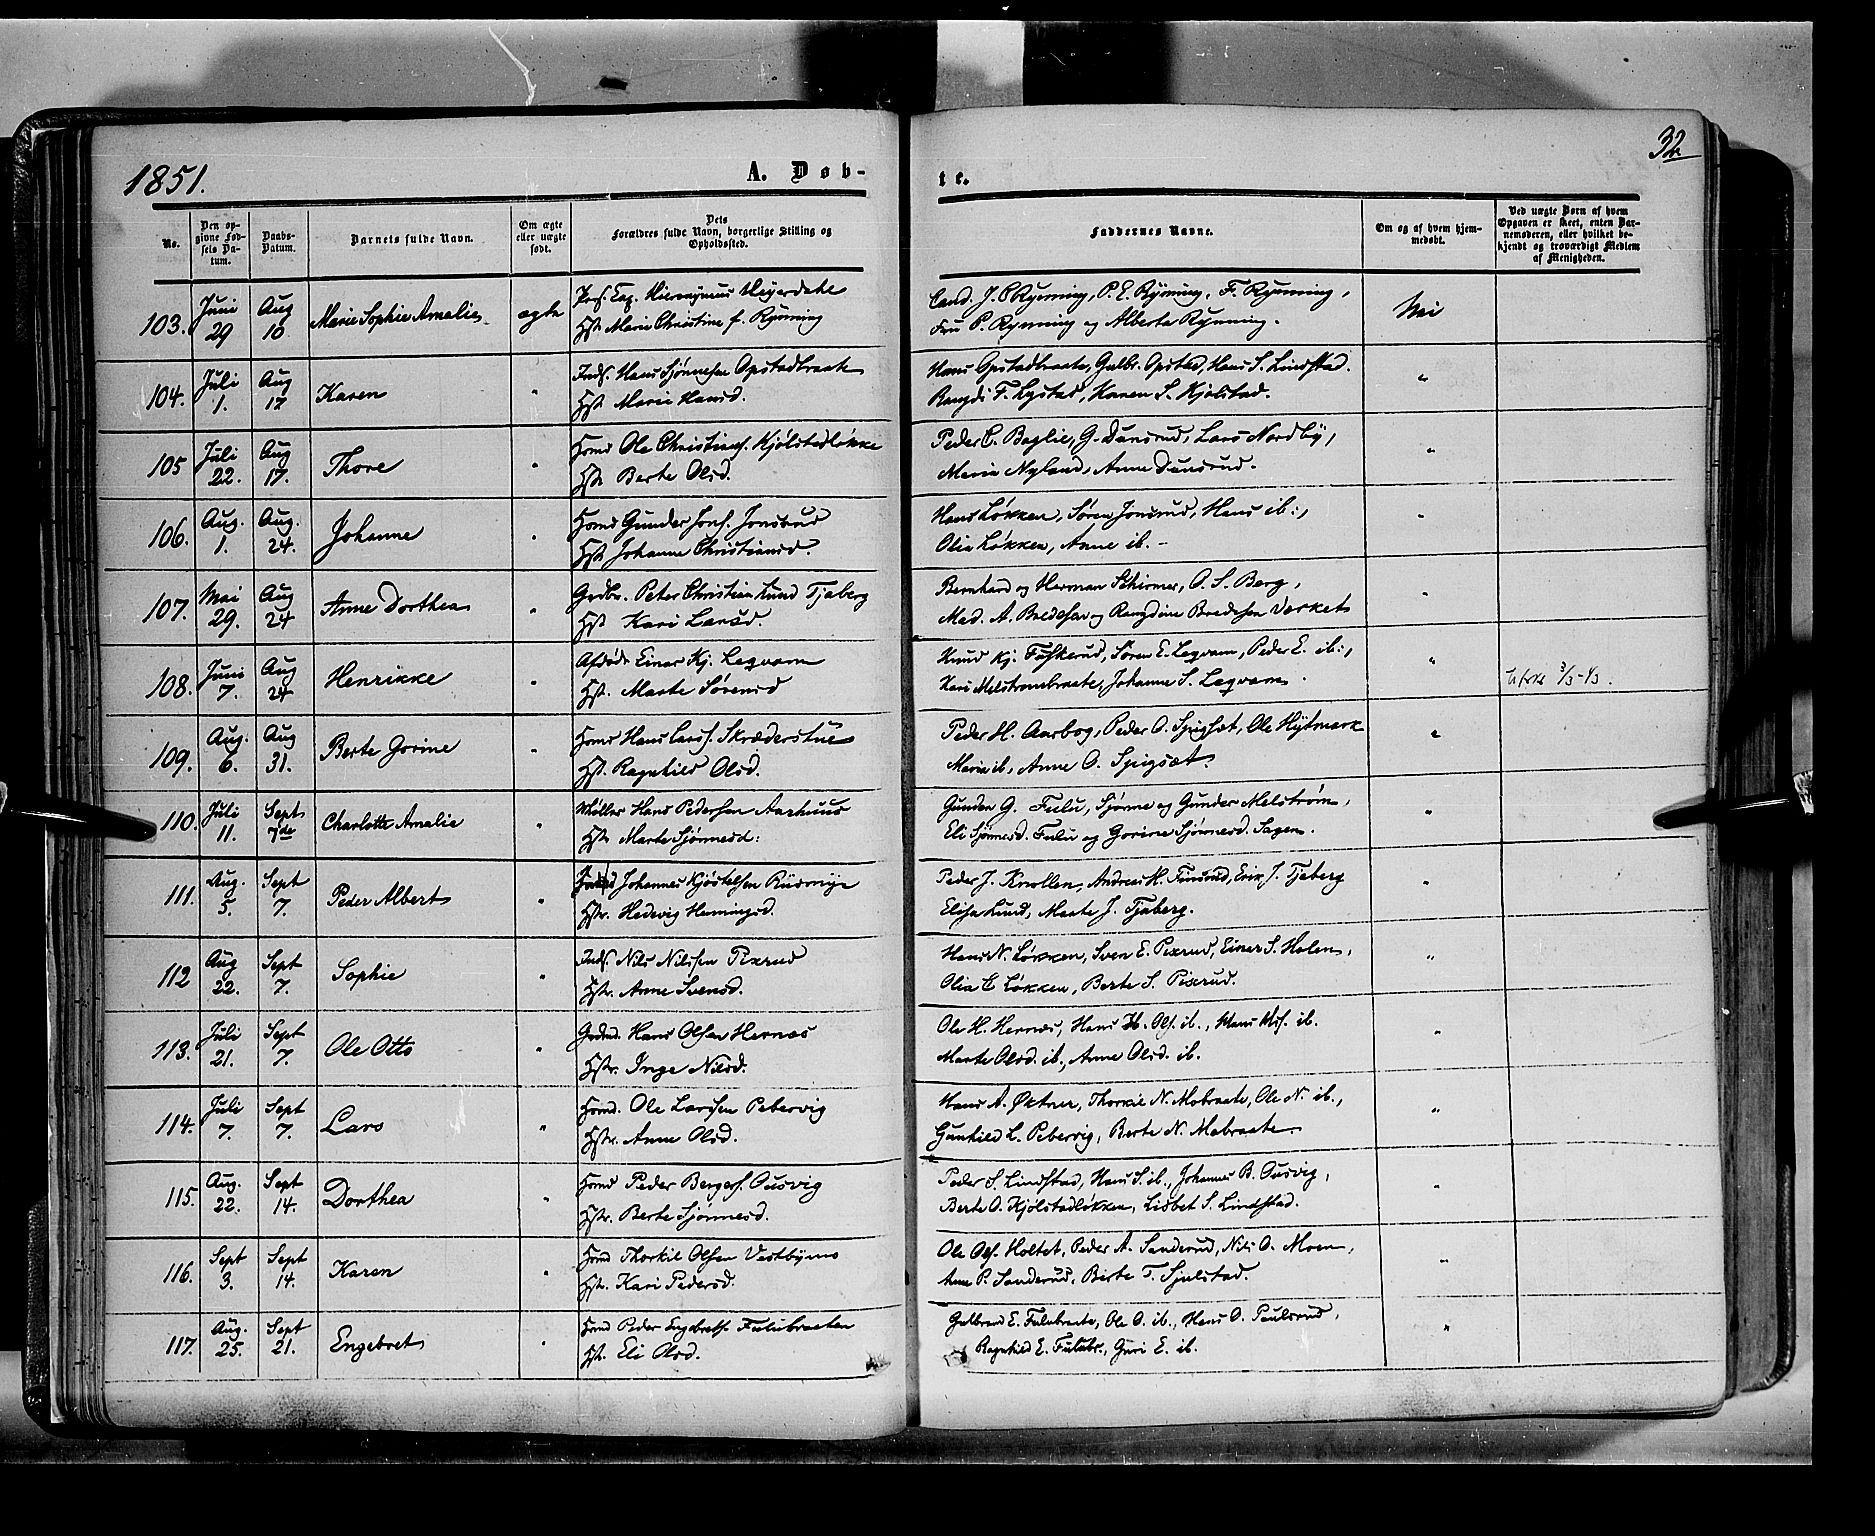 1851.
A. Døb-
te.
32
No.
Den opgivne Fødsels Datum.
Daabs-Datum.
Barnets fulde Navn.
Om ægte eller uægte født.
Dets Forældres fulde Navn, borgerlige Stilling og Opholdssted.
Faddernes Navne.
Om og af hvem hjemmedøbt.
Ved uægte Børn af hvem Opgaven er skeet, enten Barnemoderen, eller hvilket bekjendt og troværdigt Medlem af Menigheden.
103. Juni 29 Aug 10 Marie Sophie Amalie ægte Hieronymus Heyerdahl
Hst. Marie Christine f. Rynning
Cand. J. C Rynning, P. E. Rynning, F. Rynning,
Fru P. Rynning og Alberta Rynning.
Nei
104. Juli 1. Aug 17 Karen " Inds. Hans Sjønnesen Opstadbraate
Hst. Marie Hansd.
Hans Opstadbraate, Gulbr. Opstad, Hans S. Lindstad.
Rangdi F. Lystad, Karen S. Kjølstad.
"
105 Juli 22. Aug 17. Thore " Hsmd Ole Christians. Kjølstadløkke
Hst. Berte Olsd.
Peder C. Baglie, G. Dunsrud, Lars Nordby,
Maria Nyland, Anne Dunsrud.
"
106. Aug. 1. Aug. 24. Johanne " Hsmd Gunder Jons. Jonsrud
Hst. Johanne Christiansd.
Hans Løkken, Søren Jonsrud, Hans ib.,
Olia Løkken, Anne ib.
"
107. Mai 29. Aug 24 Anne Dorthea " Grdbr. Peter Christian Lund Tjaberg
Hst. Kari Larsd.
Bernhard og Herman Schirmer, O. S. Berg,
Mad. A. Bredesen og Rangdine Bredesen Værket
"
108. Juni 7. Aug 24 Henrikke " Afdøde Einar Kj. Legvam
Hst. Marte Sørensd
Knud Kj. Fuskerud, Søren E. Legvam, Peder E. ib.,
Kari Melstrombraate, Johanne S. Legvam.
"
109. Aug. 6. Aug 31. Berte Gorine " Hsmd Hans Larss. Skræderstue
Hst. Ragnhild Olsd.
Peder H. Aarbog, Peder O. Spigset, Ole Hytmark
Maria ib, Anne O. Spigset.
"
110. Juli 11. Sept 7de Charlotte Amalie " Møller Hans Pedersen Aarhuus
Hst. Marte Sjønnesd.
Gunder G. Fulu, Sjønne og Gunder Melstrøm,
Eli Sjønnesd. Fulu og Gorine Sjønnesd. Sagen.
"
111. Aug. 5. Sept 7. Peder Albert " Johannes Kjøstelsen Rusmyr
Hstr. Hedevig Hemingsd.
Peder J. Knollen, Andreas H. Finsrud, Erik J. Tjaberg
Elisa Lund, Marte J. Tjaberg.
"
112 Aug 22. Sept 7. Sophie " Inds. Nils Nilssen Pixrud
Hstr. Anne Svensd.
Hans N. Løkken, Sven E. Pixrud, Einer S. Holen,
Olia C Løkken, Berte S. Pixrud.
"
113. Juli 21. Sept 7. Ole Otto " Grdmd. Hans Olsen Hernæs
Hstr. Inge Nilsd.
Ole H. Hernæs, Hans H. Ols. ib., Hans Nils. ib.
Marte Olsd. ib., Anne Olsd. ib.
"
114. Juli 7. Sept 7. Lars " Hsmd. Ole Larssen Pebervig
Hstr. Anne Olsd.
Hans A. Østner, Thorkil N. Mobraate, Ole N. ib.,
Gunhild L. Pebervig, Berte N. Mobraate
"
115. Aug. 22. Sept 14. Dorthea " Hsmd Peder Bergers. Ousvig
Hstr. Berte Sjønnesd.
Peder S. Lindstad, Hans S. ib., Johannes B. Ousvig,
Berte O. Kjølstadløkken, Lisbet S. Lindstad.
"
116. Sept 3. Sept 14. Karen " Hsmd Thorkil Olsen Vestbymo
Hstr. Kari Pedersd.
Ole Ols. Holtet, Peder A. Sanderud, Nils O. Moen,
Anne P. Sanderud, Berte T. Sjulstad.
"
117. Aug. 25. Sept 21. Engebret " Hsmd Peder Engebrets. Fulubraaten
Hst. Eli Olsd.
Gulbrand E. Fulubraate, Ole O. ib., Hans O. Paulsrud,
Ragnhild E. Fulubr., Guri E. ib.
"